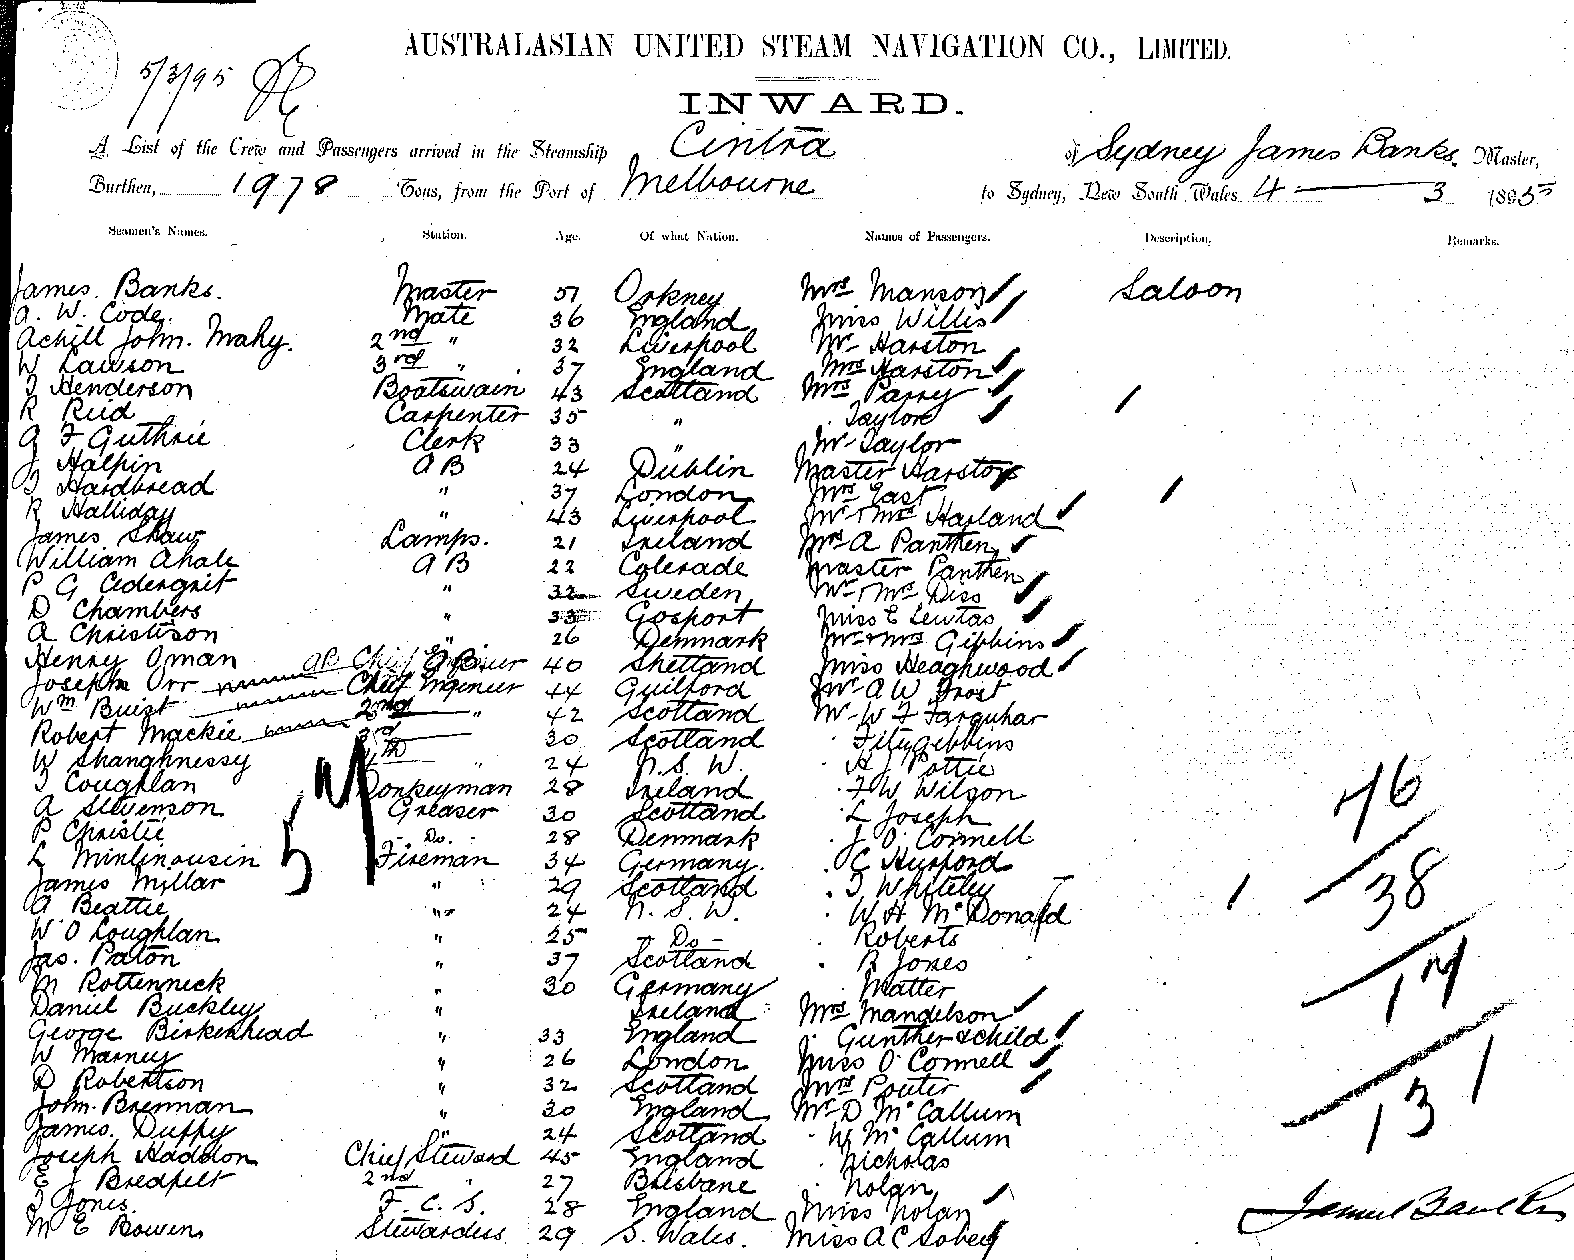 AUSTRALASIAN UNITED STEAM NAVIGATION CO., LIMITED.
5/3/95
INWARD.
A List of the Crew and Passengers arrived in the Steamship Cintra of Sydney James Banks. Master,
Burthen, 1978 Tons, from the Port of Melbourne to Sydney, New South Wales 4 — 3 1895
Seamen's Names. Station. Age. Of what Nation. Names of Passengers. Description. Remarks.
James. Banks. Master 51 Orkney Mrs Manson Saloon
A. W. Code. Mate 36 England Miss Willis
Achill John. Mahy. 2nd " 32 Liverpool Mr Harston
W Lawson 3rd " 37 England Mrs Harston
J Henderson Boatswain 43 Scotland Mrs Parry
R Reid Carpenter 35 " Taylor
A F Guthrie Clerk 33 " Mr Taylor
J Halpin A B 24 Dublin Master Harston
J Hardbread " 37 London Mrs East
R Halliday " 43 Liverpool Mr & Mrs Harland
James Shaw Lamps. 21 Ireland Mrs A Panthen
William Ahale A B 22 Colerade Master Panthen
P G Cedergrit " 32 Sweden Mr & Mrs Diss
D Chambers " 33 Gosport Miss E Lewtas
A Christison " 26 Denmark Mr & Mrs Gibbins
Henry Oman AB 40 Shetland Miss Heaghwood
Joseph Orr Chief Engineer 44 Guilford Mr A W Frost
Wm Buist 2nd " 42 Scotland Mr W F Farquhar
Robert Mackie 3rd 30 Scotland Fitzgibbins
W Shanghnessy 4th " 24 N. S. W. A J Pottie
J Coughlan Donkeyman 28 Ireland F W Wilson
A Stevenson Greaser 30 Scotland L Joseph
P Christie - Do. - 28 Denmark J O'Connell
L Minlinousin Fireman 34 Germany. C Hursford
James Millar " 29 Scotland J Whiteley
A Beattie " 24 N. S. W. W H McDonald
W O Loughlan " 25 - Do - Roberts
Jas. Paton " 37 Scotland R Jones
M Rottenneck " 30 Germany Matter
Daniel Buckley " Ireland Mrs Mandelson
George Birkenhead " 33 England " Gunther & child
W Marney " 26 London Miss O'Connell
D Robertson " 32 Scotland Mrs Pouter
John. Brennan " 30 England Mr D McCallum
James. Duffy " 24 Scotland W McCallum
Joseph Haddon Chief Steward 45 England Nicholas
E J Bredfelt 2nd " 27 Brisbane Nolan
J Jones. F. C. S. 28 England Miss Nolan
M E Bowen Stewardess 29 S. Wales. Miss A C Sobey
57
46
38
17
131
James Banks